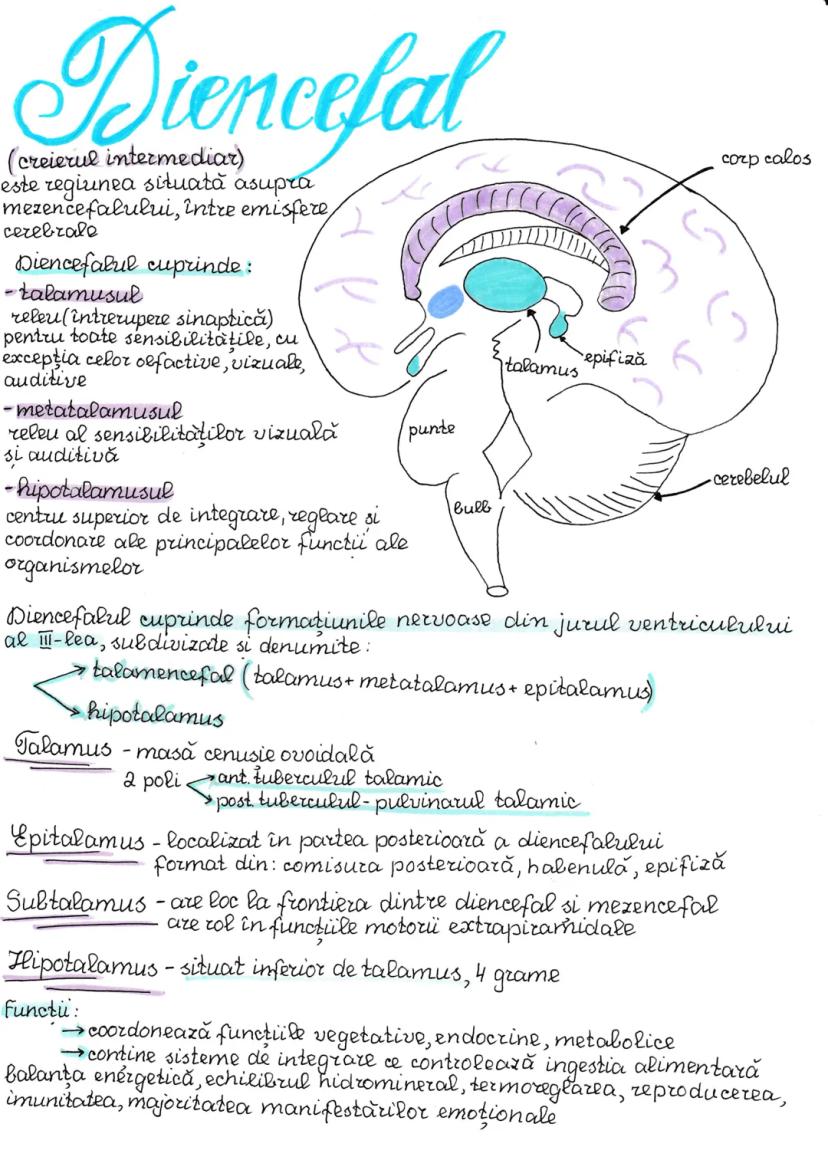 Diencefal
(creierul intermediar)
este regiunea situată asupra
mezencefalului, între emisfere
cerebrale
Diencefalul cuprinde:
- talamusul
releu (întrerupere sinaptică)
pentru toate sensibilitățile, cu
excepția celor oefactive, vizuale,
auditive
- metatalamusul
releu al sensibilităților vizuală
și auditivă
- hipotalamusul
centru superior de integrare, reglare și
coordonare ale principalelor funcții ale
organismelor
corp calos
talamus
epifiză
punte
cerebelul
bulb
Diencefalul cuprinde formațiunile nervoase din jurul ventriculului
al III-lea, subdivizate și denumite:
→ talamencefal (talamus + metatalamus + epitalamus)
→ hipotalamus
Talamus - masă cenușie ovoidală
2 poli → ant. tuberculul talamic
→ post. tuberculul - pulvinarul talamic
Epitalamus - localizat în partea posterioară a diencefalului
format din: comisura posterioară, habenulă, epifiză
Subtalamus - are loc la frontiera dintre diencefal și mezencefal
are rol în funcțiile motorii extrapiramidale
Hipotalamus - situat inferior de talamus, 4 grame
Funcții:
→ coordonează funcțiile vegetative, endocrine, metabolice
→ conține sisteme de integrare ce controlează ingestia alimentară
balanța energetică, echilibrul hidromineral, termoreglarea, reproducerea,
imunitatea, majoritatea manifestărilor emoționale